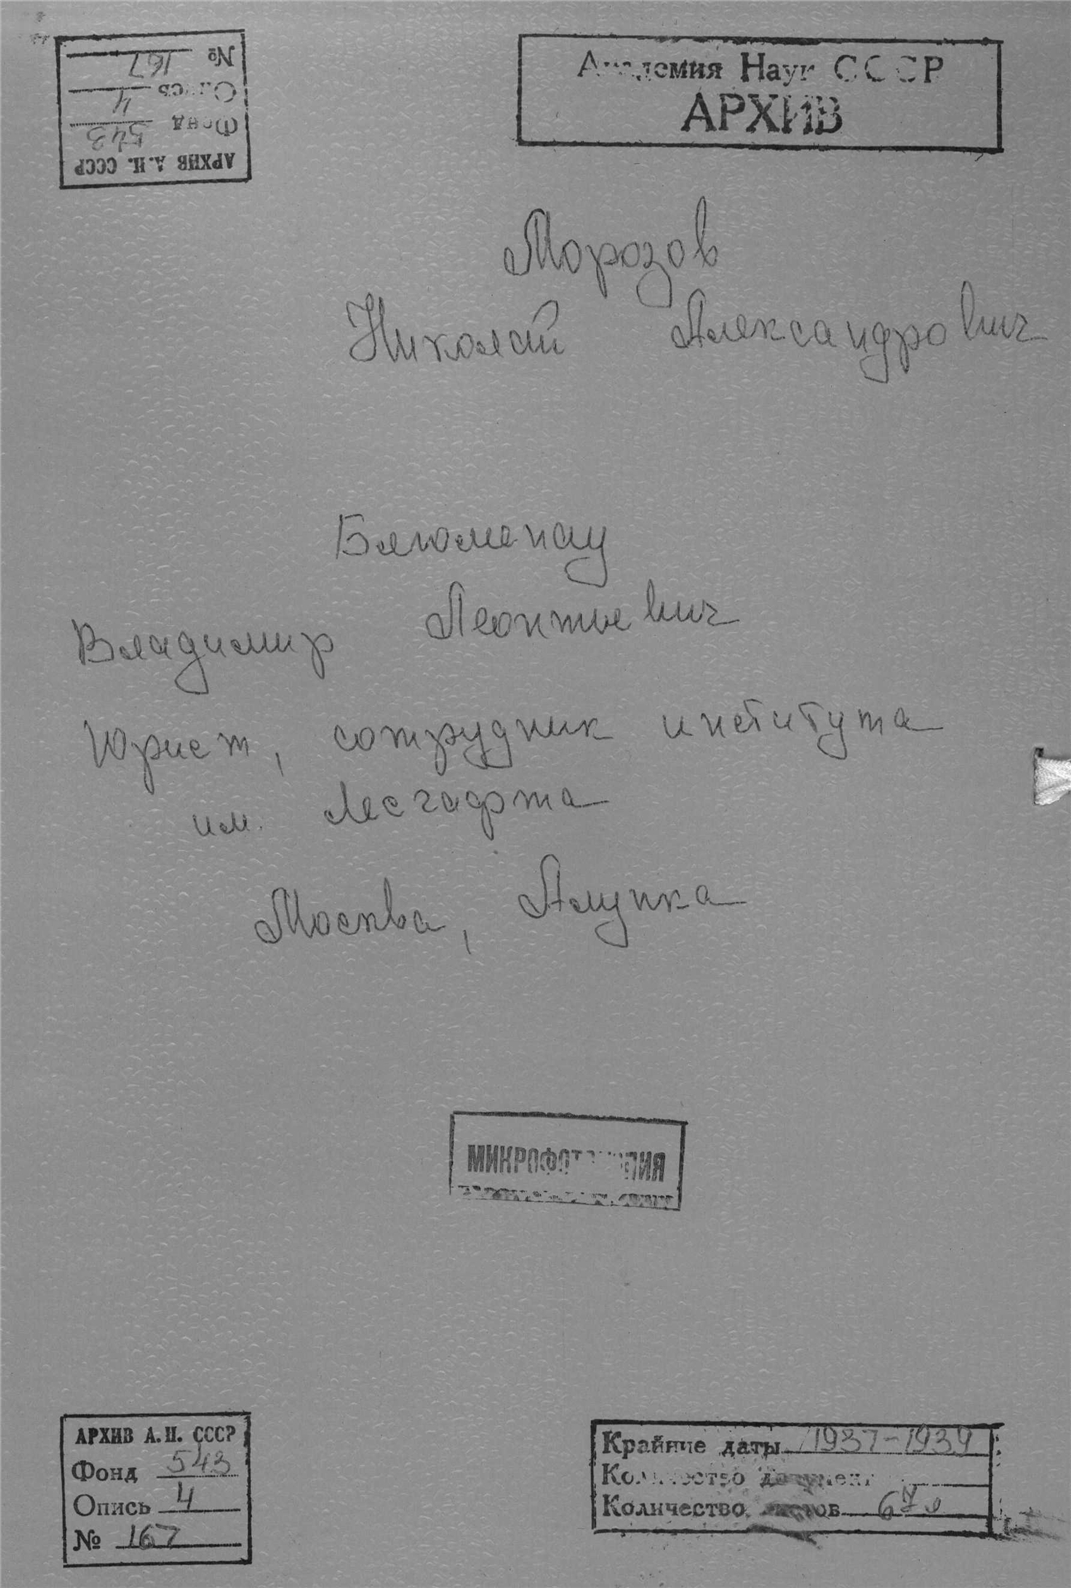 № 167
Опись 4
Фонд 543
АРХИВ А.Н. СССР
Академия Наук СССР
АРХИВ
Морозов
Николай Александрович
Блюменау
Владимир Леонтьевич
Юрист, сотрудник института
им. Лесгафта
Москва, Алупка
МИКРОФОТОКОПИЯ
АРХИВ А.Н. СССР
Фонд 543
Опись 4
№ 167
Крайние даты 1937-1939
Количество документ
Количество листов 67